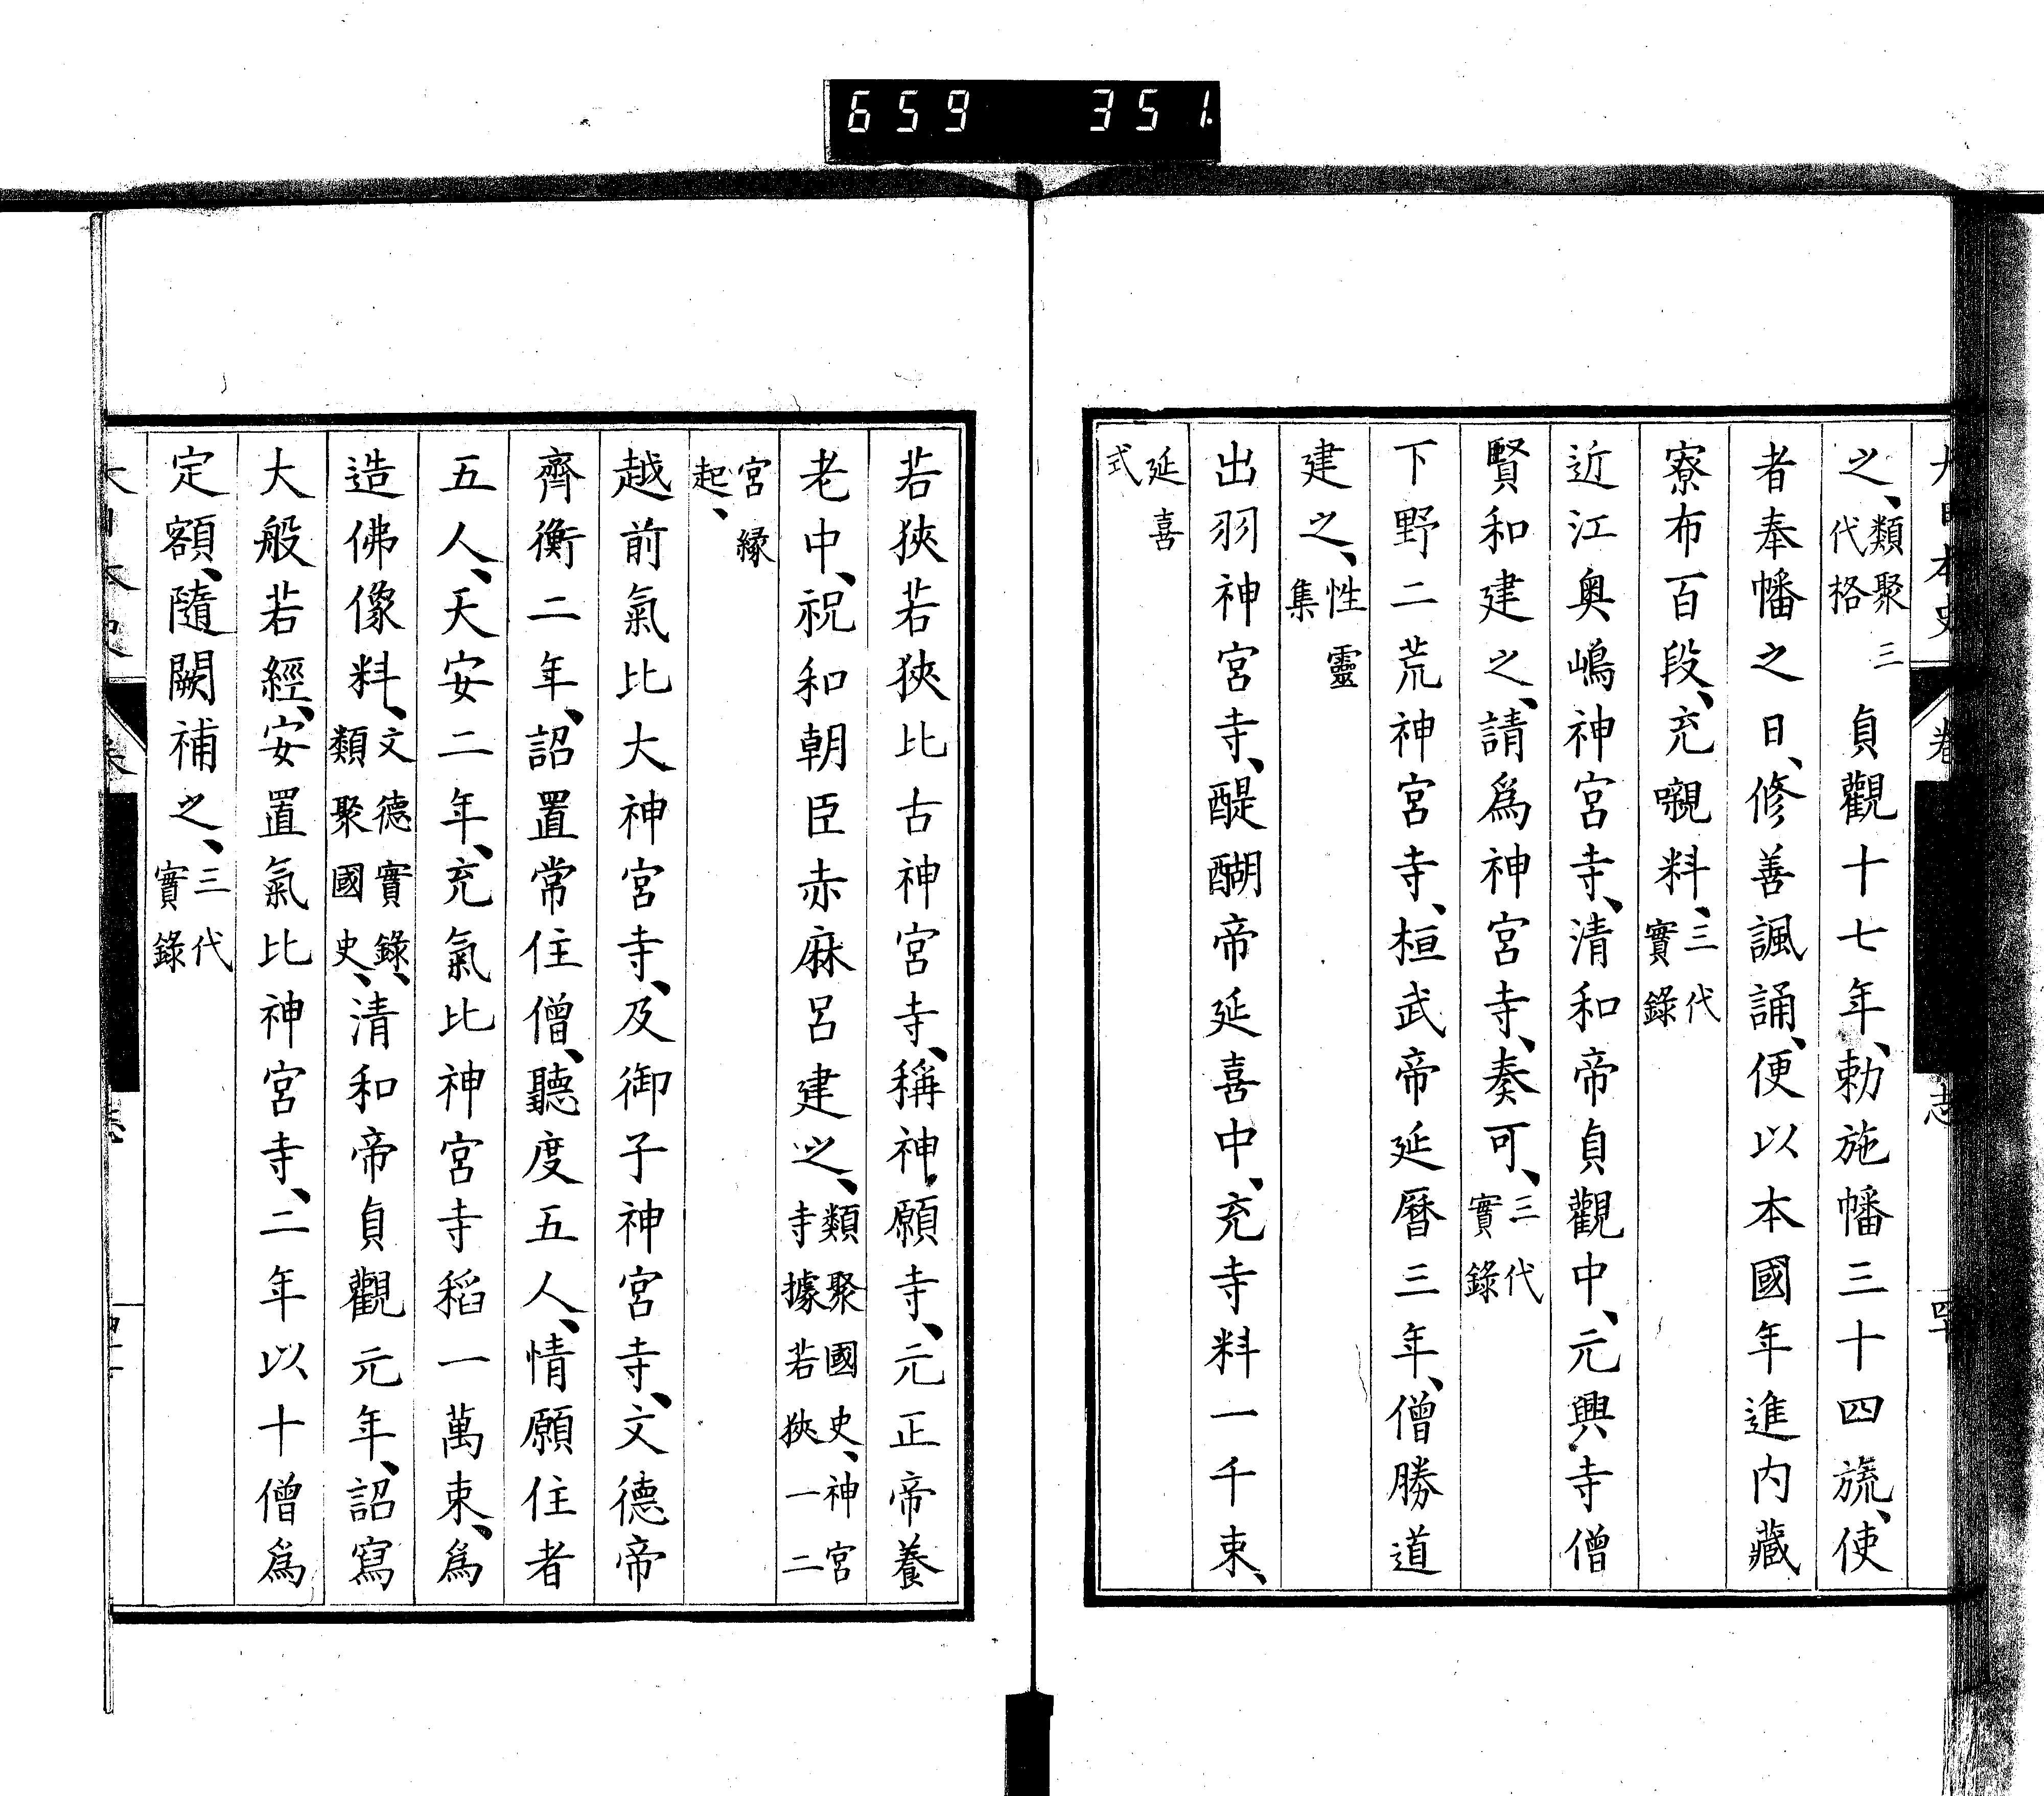 659 351.
之、類聚三代格貞觀十七年、勅施幡三十四旒、使
者奉幡之日、修善諷誦、便以本國年進内藏
寮布百段、充嚫料、三代實錄
近江奥嶋神宮寺、清和帝貞觀中、元興寺僧
賢和建之、請爲神宮寺、奏可、三代實錄
下野二荒神宮寺、桓武帝延曆三年、僧勝道
建之、性靈集
出羽神宮寺、醍醐帝延喜中、充寺料一千束、
延喜式
若狹若狹比古神宮寺、稱神願寺、元正帝養
老中、祝和朝臣赤麻呂建之、類聚國史、神宮寺據若狹一二
宮縁起、
越前氣比大神宮寺、及御子神宮寺、文德帝
齊衡二年、詔置常住僧、聽度五人、情願住者
五人、天安二年、充氣比神宮寺稻一萬束、爲
造佛像料、文德實錄、類聚國史、清和帝貞觀元年、詔寫
大般若經、安置氣比神宮寺、二年以十僧爲
定額、隨闕補之、三代實錄